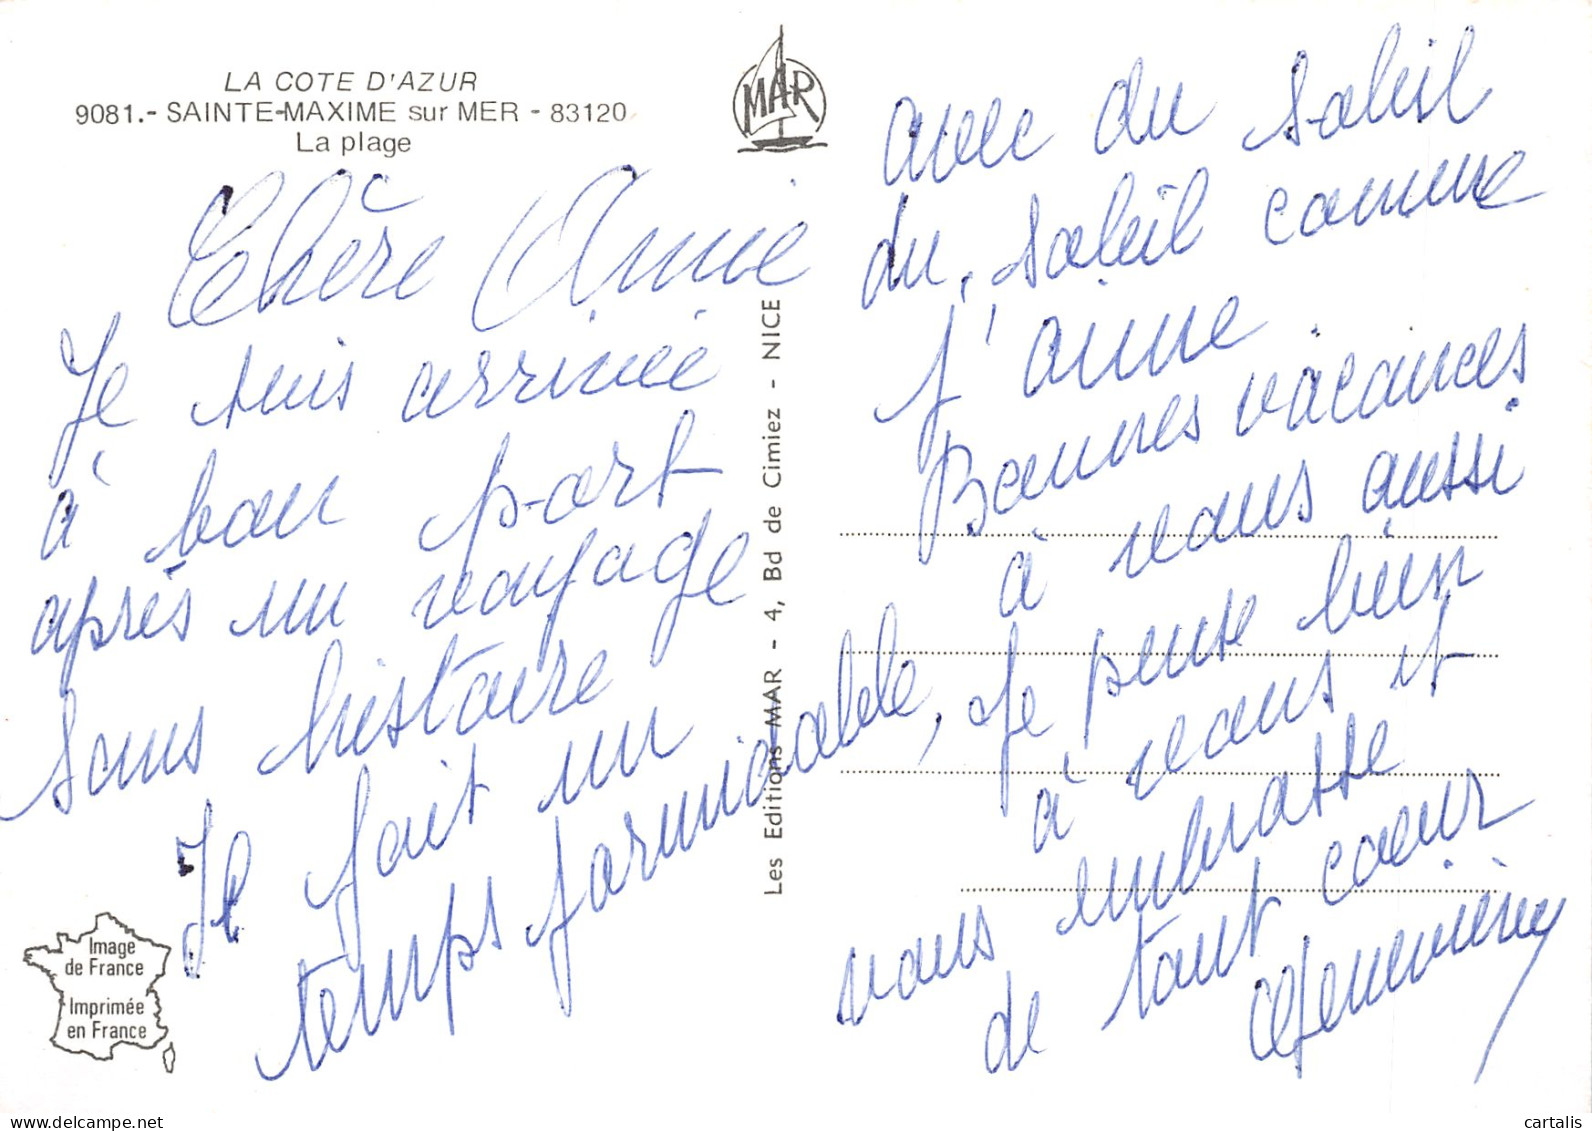 LA COTE D'AZUR
9081.- SAINTE-MAXIME sur MER - 83120
La plage
MAR
Chère Amie
Je suis arrivée
à bon port
après un voyage
sans histoire
Il fait un
temps formidable,
avec du soleil
du, soleil comme
j'aime
Bonnes vacances
à vous aussi
Je pense bien
à vous et
vous embrasse
de tout coeur
Geneviève
Les Editions MAR - 4, Bd de Cimiez - NICE
Image
de France
Imprimée
en France
cartalis